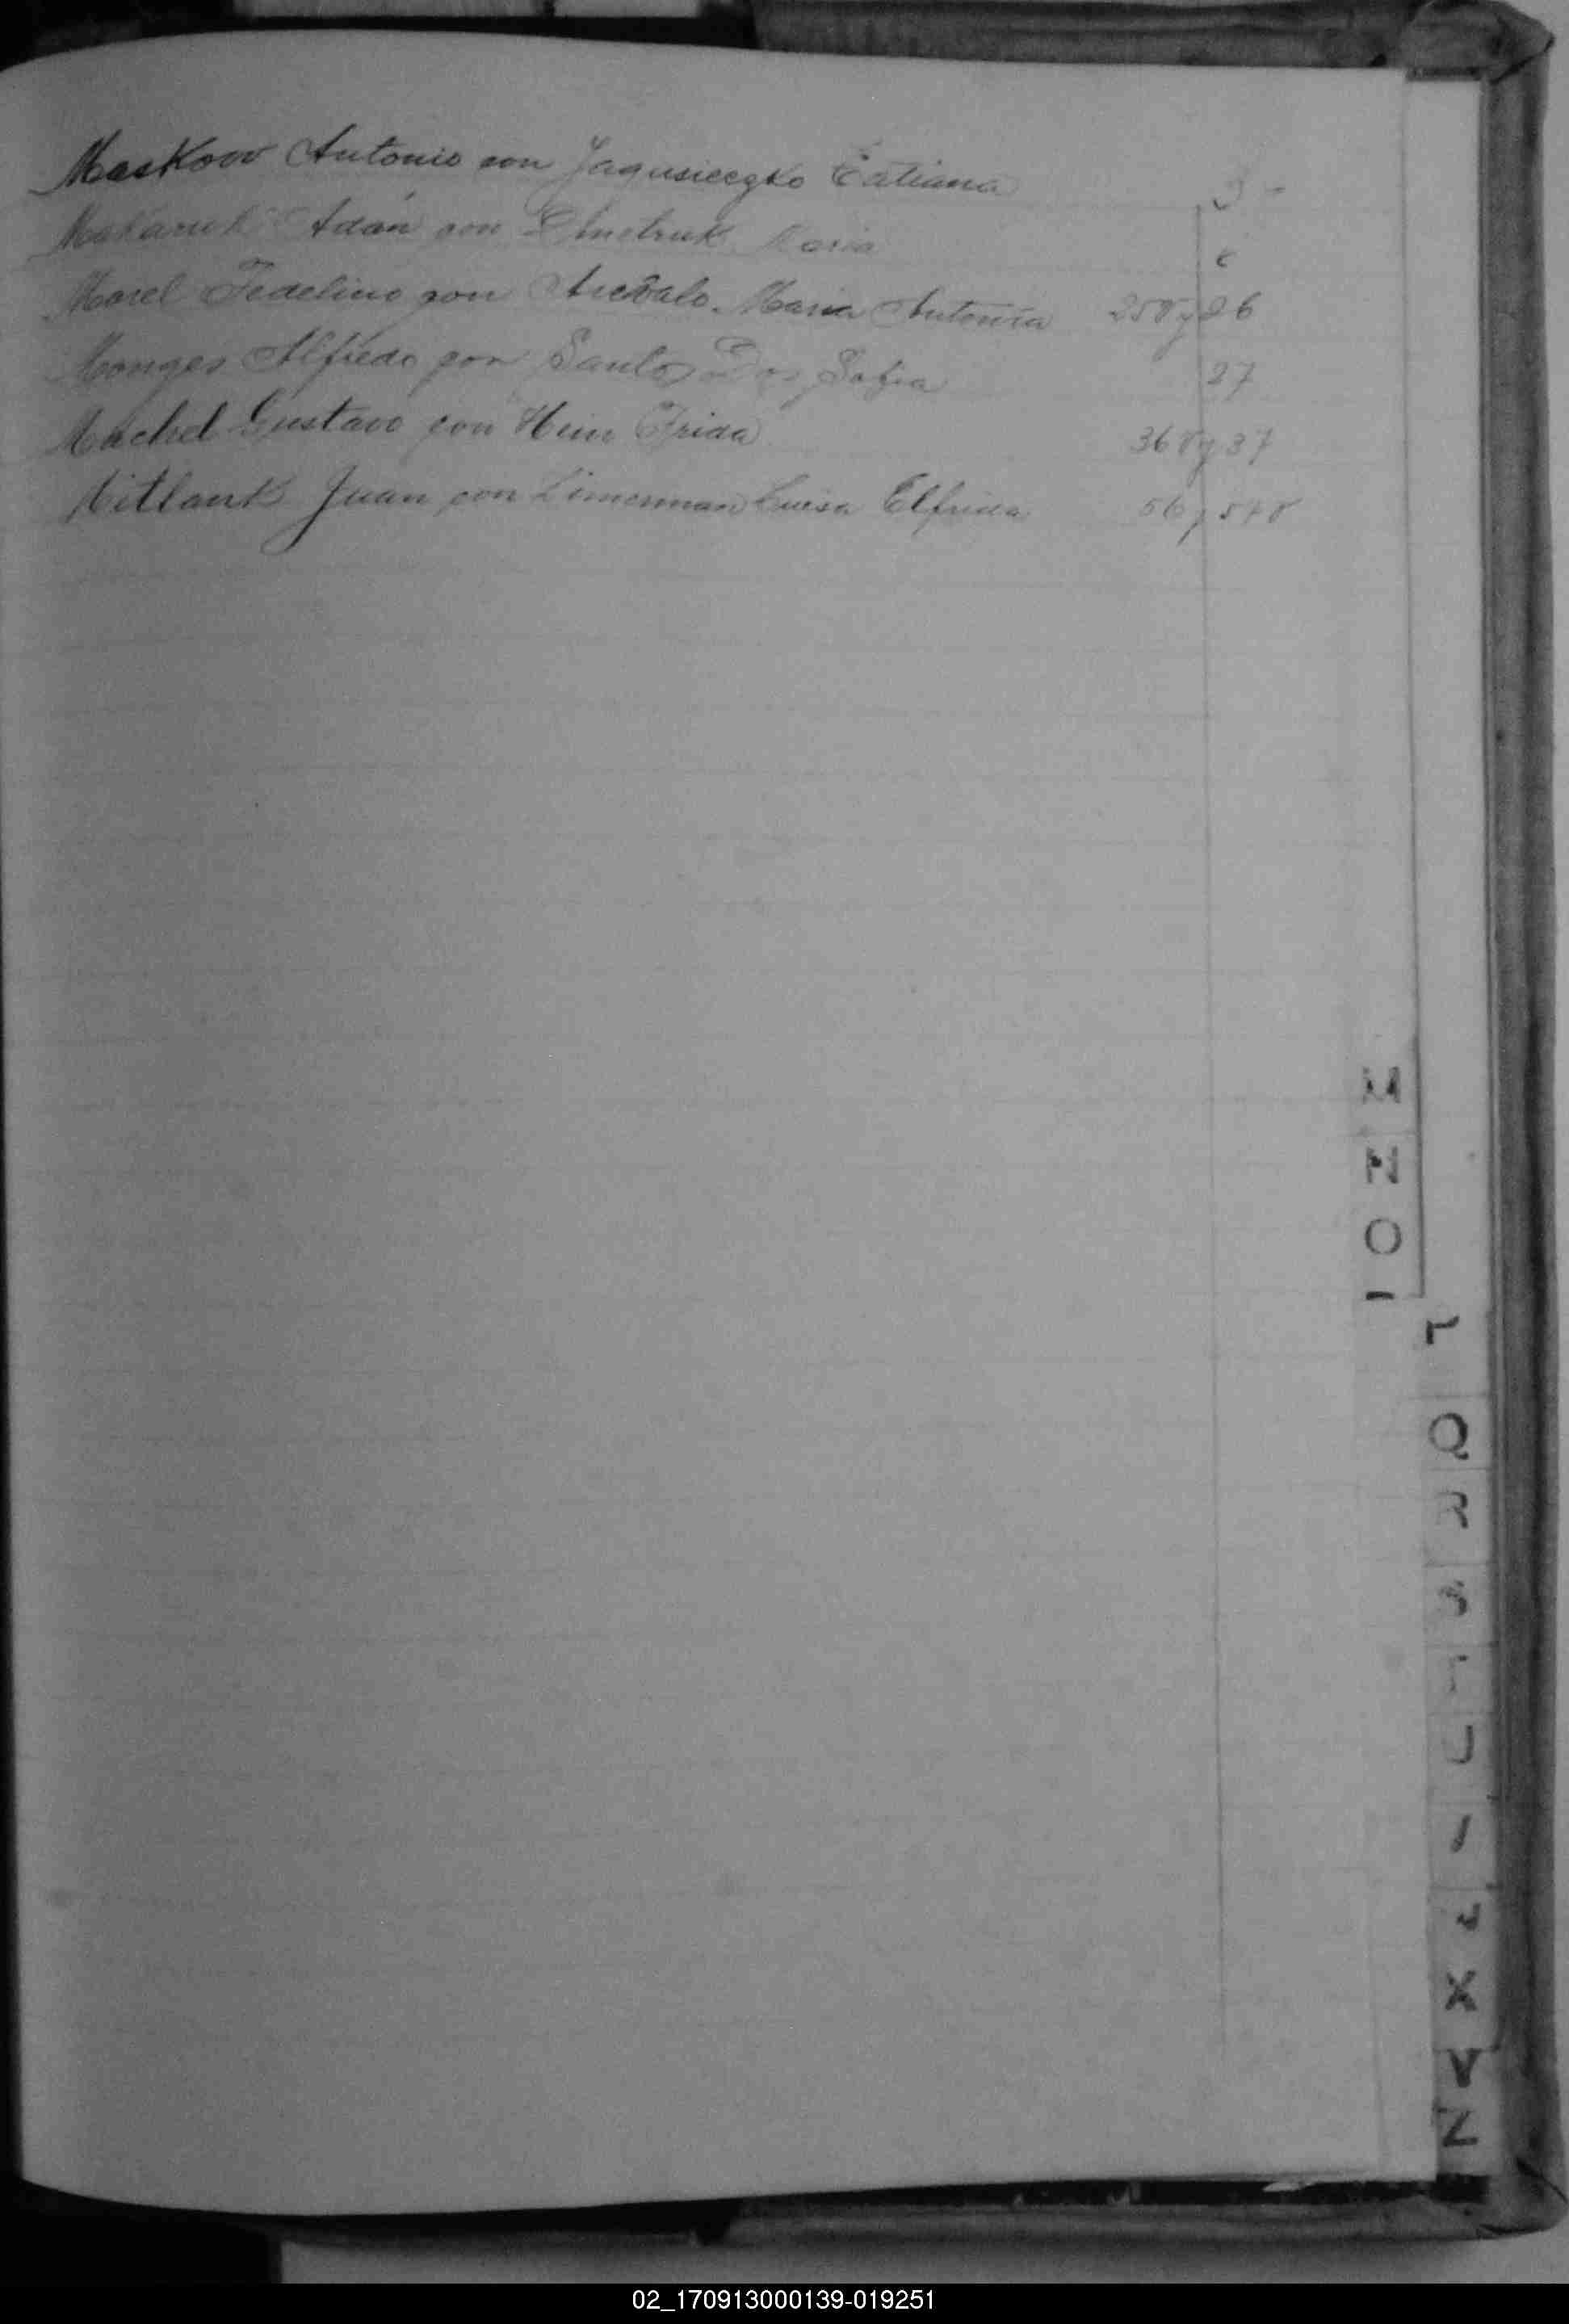 Maskow Antonio con Jagusieczko Tatiana 5
Makaruk Adán con Dmetruk María 6
Morel Fedelino con Arévalo María Antonia 25v y 26
Monges Alfredo con Santos Dos Sofia 27
Machel Gustavo con Hein Frida 36v y 37
Juan con Zimerman Luisa Elfrida 56 y 57v
M
N
O
Q
R
S
T
U
X
Y
Z
02_170913000139-019251